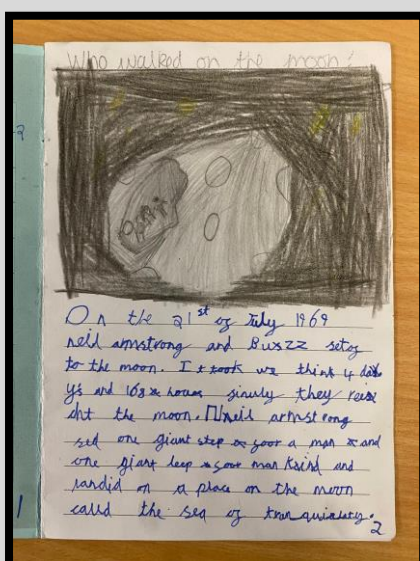 Who walked on the moon?
On the 21st of July 1969
neild armstrong and Buszz setof
to the moon. I t took we think 4 da
ys and 168 houors finuly they
cht the moon. Nneil armstrong
sed one giant step foor a man and
one giant leep foor man Kaind and
landid on a place on the moon
called the sea of tranquialaty.
2